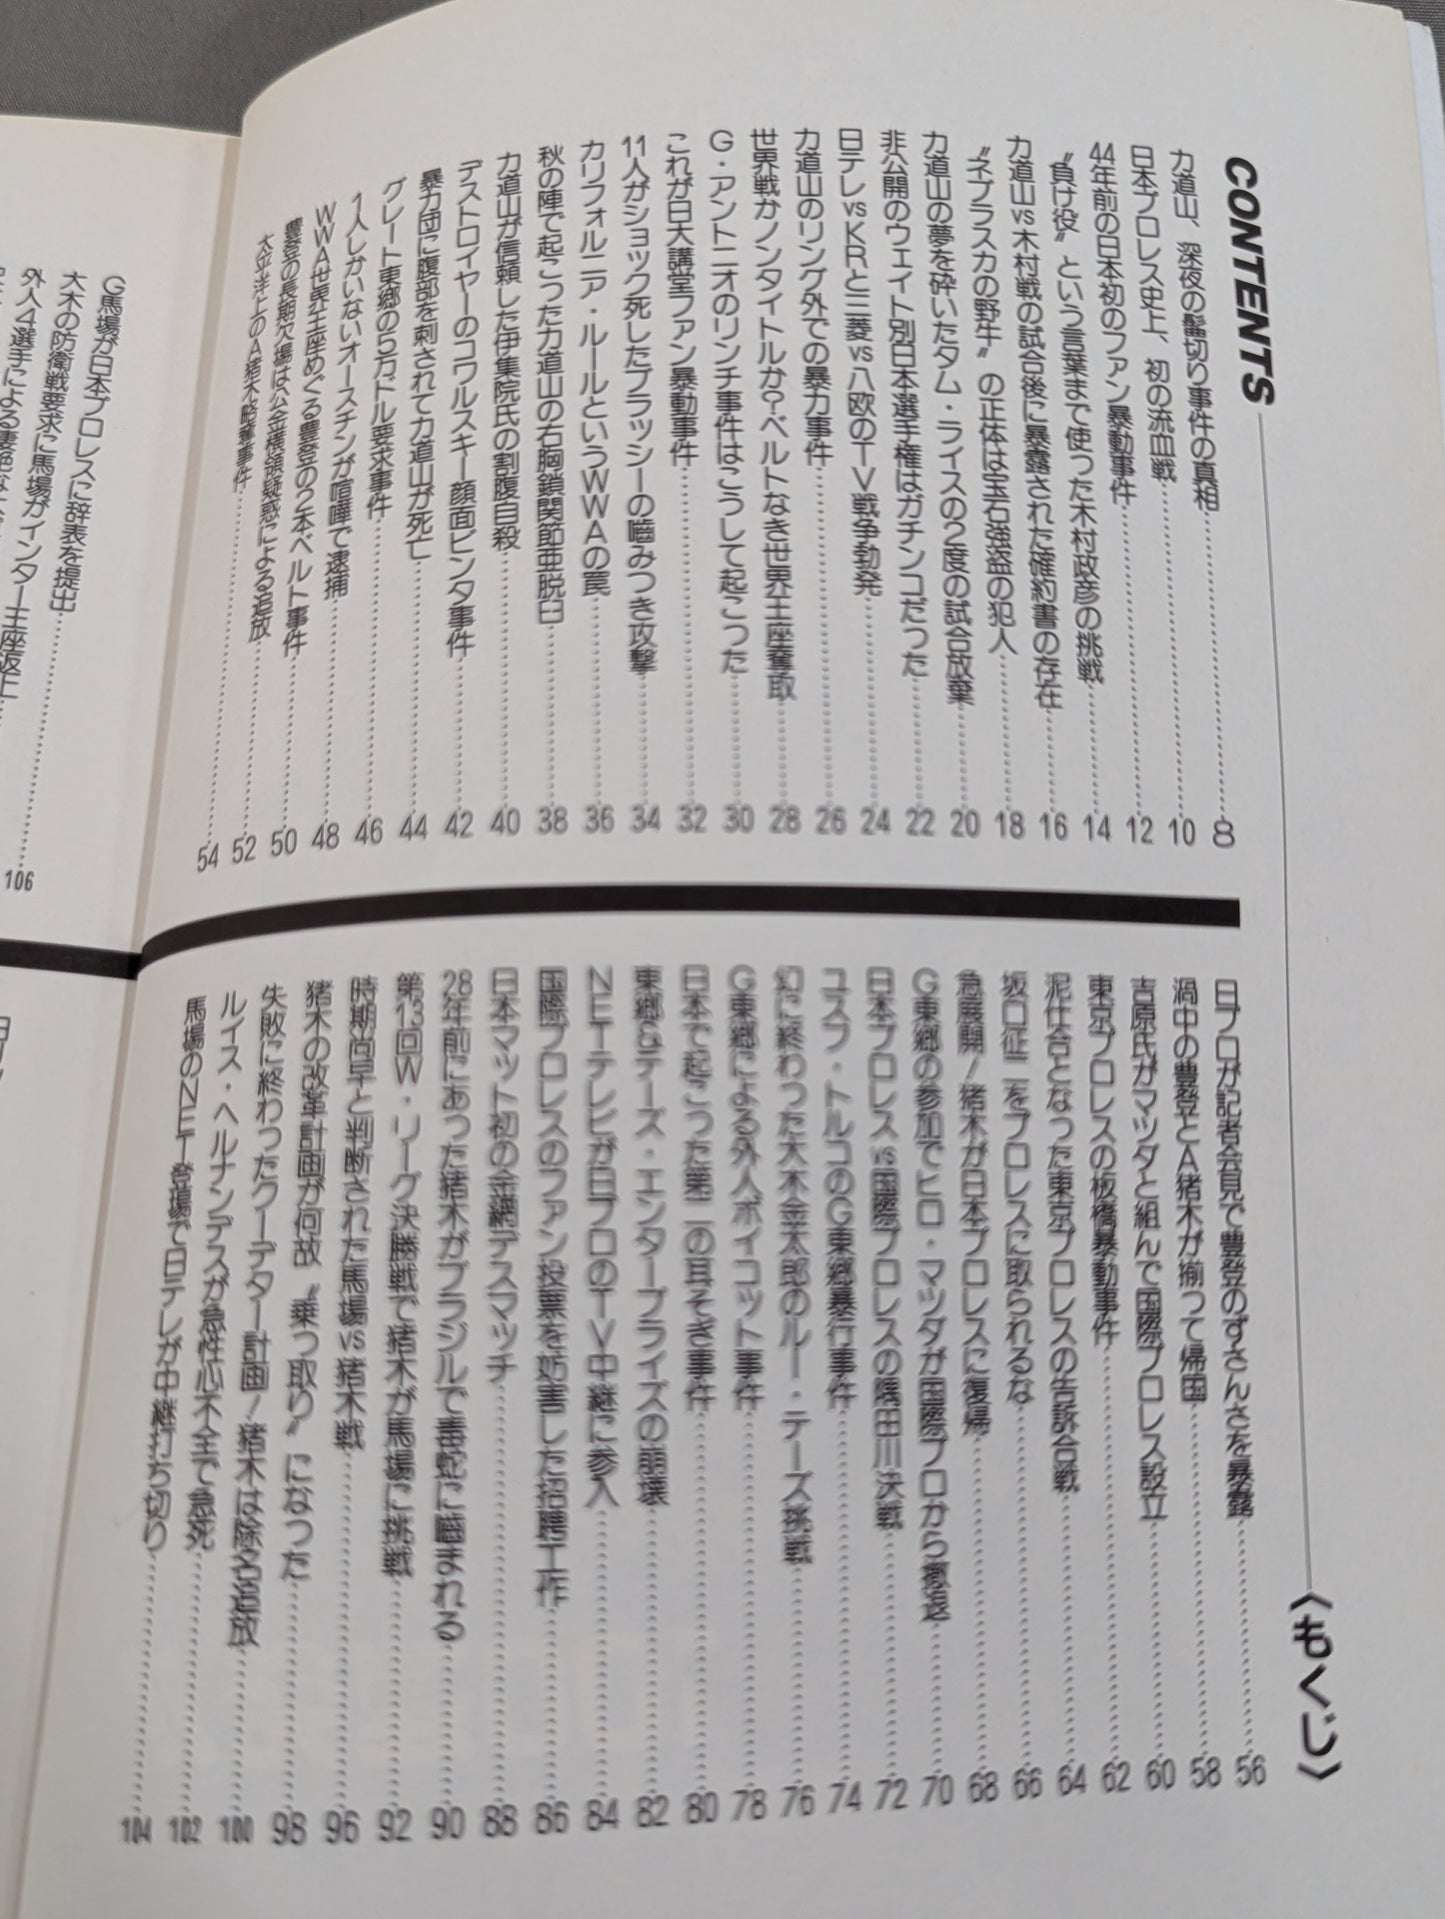 CONTENTS
〈もくじ〉
力道山、深夜の髷切り事件の真相 8
日本プロレス史上、初の流血戦 10
44年前の日本初のファン暴動事件 12
〝負け役〟という言葉まで使った木村政彦の挑戦 14
力道山vs木村戦の試合後に暴露された確約書の存在 16
〝ネブラスカの野牛〟の正体は宝石強盗の犯人 18
力道山の夢を砕いたタム・ライスの2度の試合放棄 20
非公開のウェイト別日本選手権はガチンコだった 22
日テレvsKRと三菱vs八欧のTV戦争勃発 24
力道山のリング外での暴力事件 26
世界戦かノンタイトルか?ベルトなき世界王座奪取 28
G・アントニオのリンチ事件はこうして起こった 30
これが日大講堂ファン暴動事件 32
11人がショック死したブラッシーの噛みつき攻撃 34
カリフォルニア・ルールというWWAの罠 36
秋の陣で起こった力道山の右胸鎖関節亜脱臼 38
力道山が信頼した伊集院氏の割腹自殺 40
デストロイヤーのコワルスキー顔面ビンタ事件 42
暴力団に腹部を刺されて力道山が死亡 44
グレート東郷の5万ドル要求事件 46
1人しかいないオースチンが喧嘩で逮捕 48
WWA世界王座めぐる豊登の2本ベルト事件 50
豊登の長期欠場は公金横領疑惑による追放 52
太平洋上のA猪木略奪事件 54
日プロが記者会見で豊登のずさんさを暴露 56
渦中の豊登とA猪木が揃って帰国 58
吉原氏がマツダと組んで国際プロレス設立 60
東京プロレスの板橋暴動事件 62
泥仕合となった東京プロレスの告訴合戦 64
坂口征二をプロレスに取られるな 66
急展開!猪木が日本プロレスに復帰 68
G東郷の参加でヒロ・マツダが国際プロから撤退 70
日本プロレスvs国際プロレスの隅田川決戦 72
ユスフ・トルコのG東郷暴行事件 74
幻に終わった大木金太郎のルー・テーズ挑戦 76
G東郷による外人ボイコット事件 78
日本で起こった第二の耳そぎ事件 80
東郷&テーズ・エンタープライズの崩壊 82
NETテレビが日プロのTV中継に参入 84
国際プロレスのファン投票を妨害した招聘工作 86
日本マット初の金網デスマッチ 88
28年前にあった猪木がブラジルで毒蛇に噛まれる 90
第13回W・リーグ決勝戦で猪木が馬場に挑戦 92
時期尚早と判断された馬場vs猪木戦 96
猪木の改革計画が何故〝乗っ取り〟になった 98
失敗に終わったクーデター計画!猪木は除名追放 100
ルイス・ヘルナンデスが急性心不全で急死 102
馬場のNET登場で日テレが中継打ち切り 104
G馬場が日本プロレスに辞表を提出 106
大木の防衛戦要求に馬場がインター王座返上
外人4選手による凄絶な